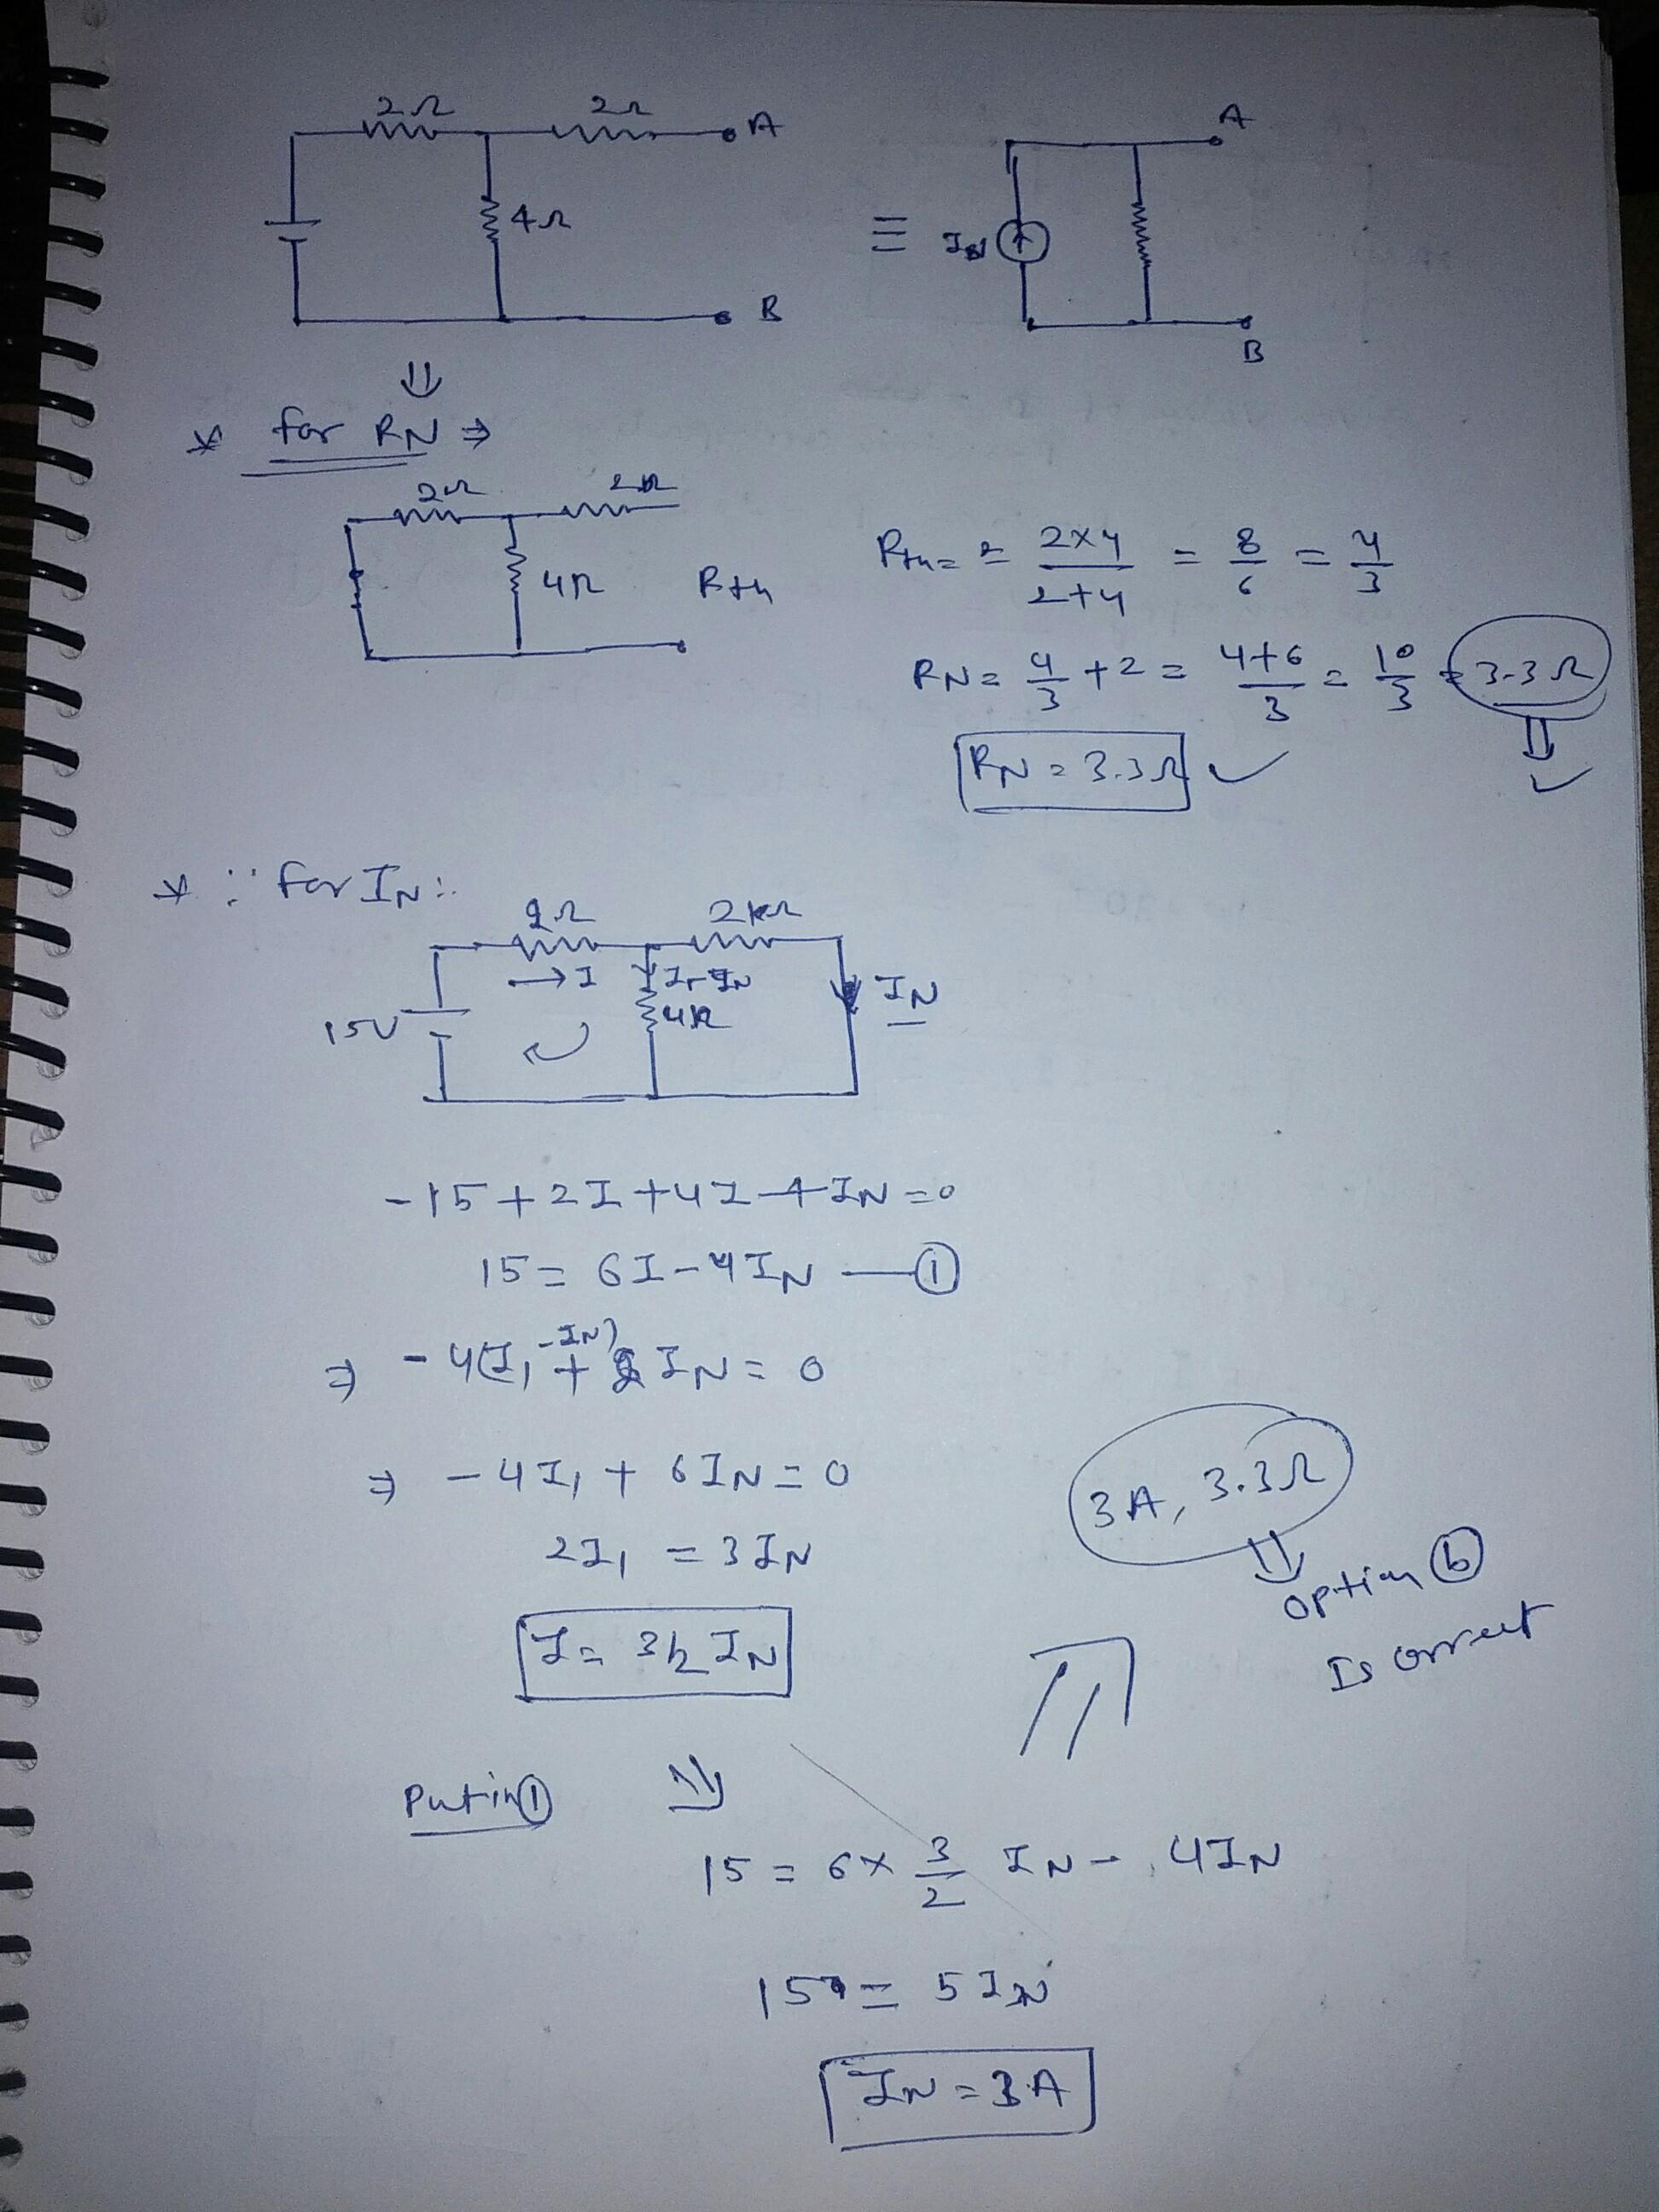 2Ω 2Ω A
4Ω
B
≡ IN A
B
⇓
* for RN ⇒
2Ω 2Ω
4Ω Rth
Rth = = 2×4/2+4 = 8/6 = 4/3
RN = 4/3 + 2 = 4+6/3 = 10/3 = 3.3Ω
RN = 3.3Ω ✓
* ∵ for IN :.
2Ω 2Ω
→ I I-IN
15V 4Ω IN
-15 + 2I + 4I - 4IN = 0
15 = 6I - 4IN — ①
⇒ - 4(I₁ - IN) + 2IN = 0
⇒ - 4I₁ + 6IN = 0
2I₁ = 3IN
I = 3/2 IN
3A, 3.3Ω
⇓
option ⓑ
Is correct
Put in ① ⇒
15 = 6 × 3/2 IN - 4IN
15 = 5IN
IN = 3A